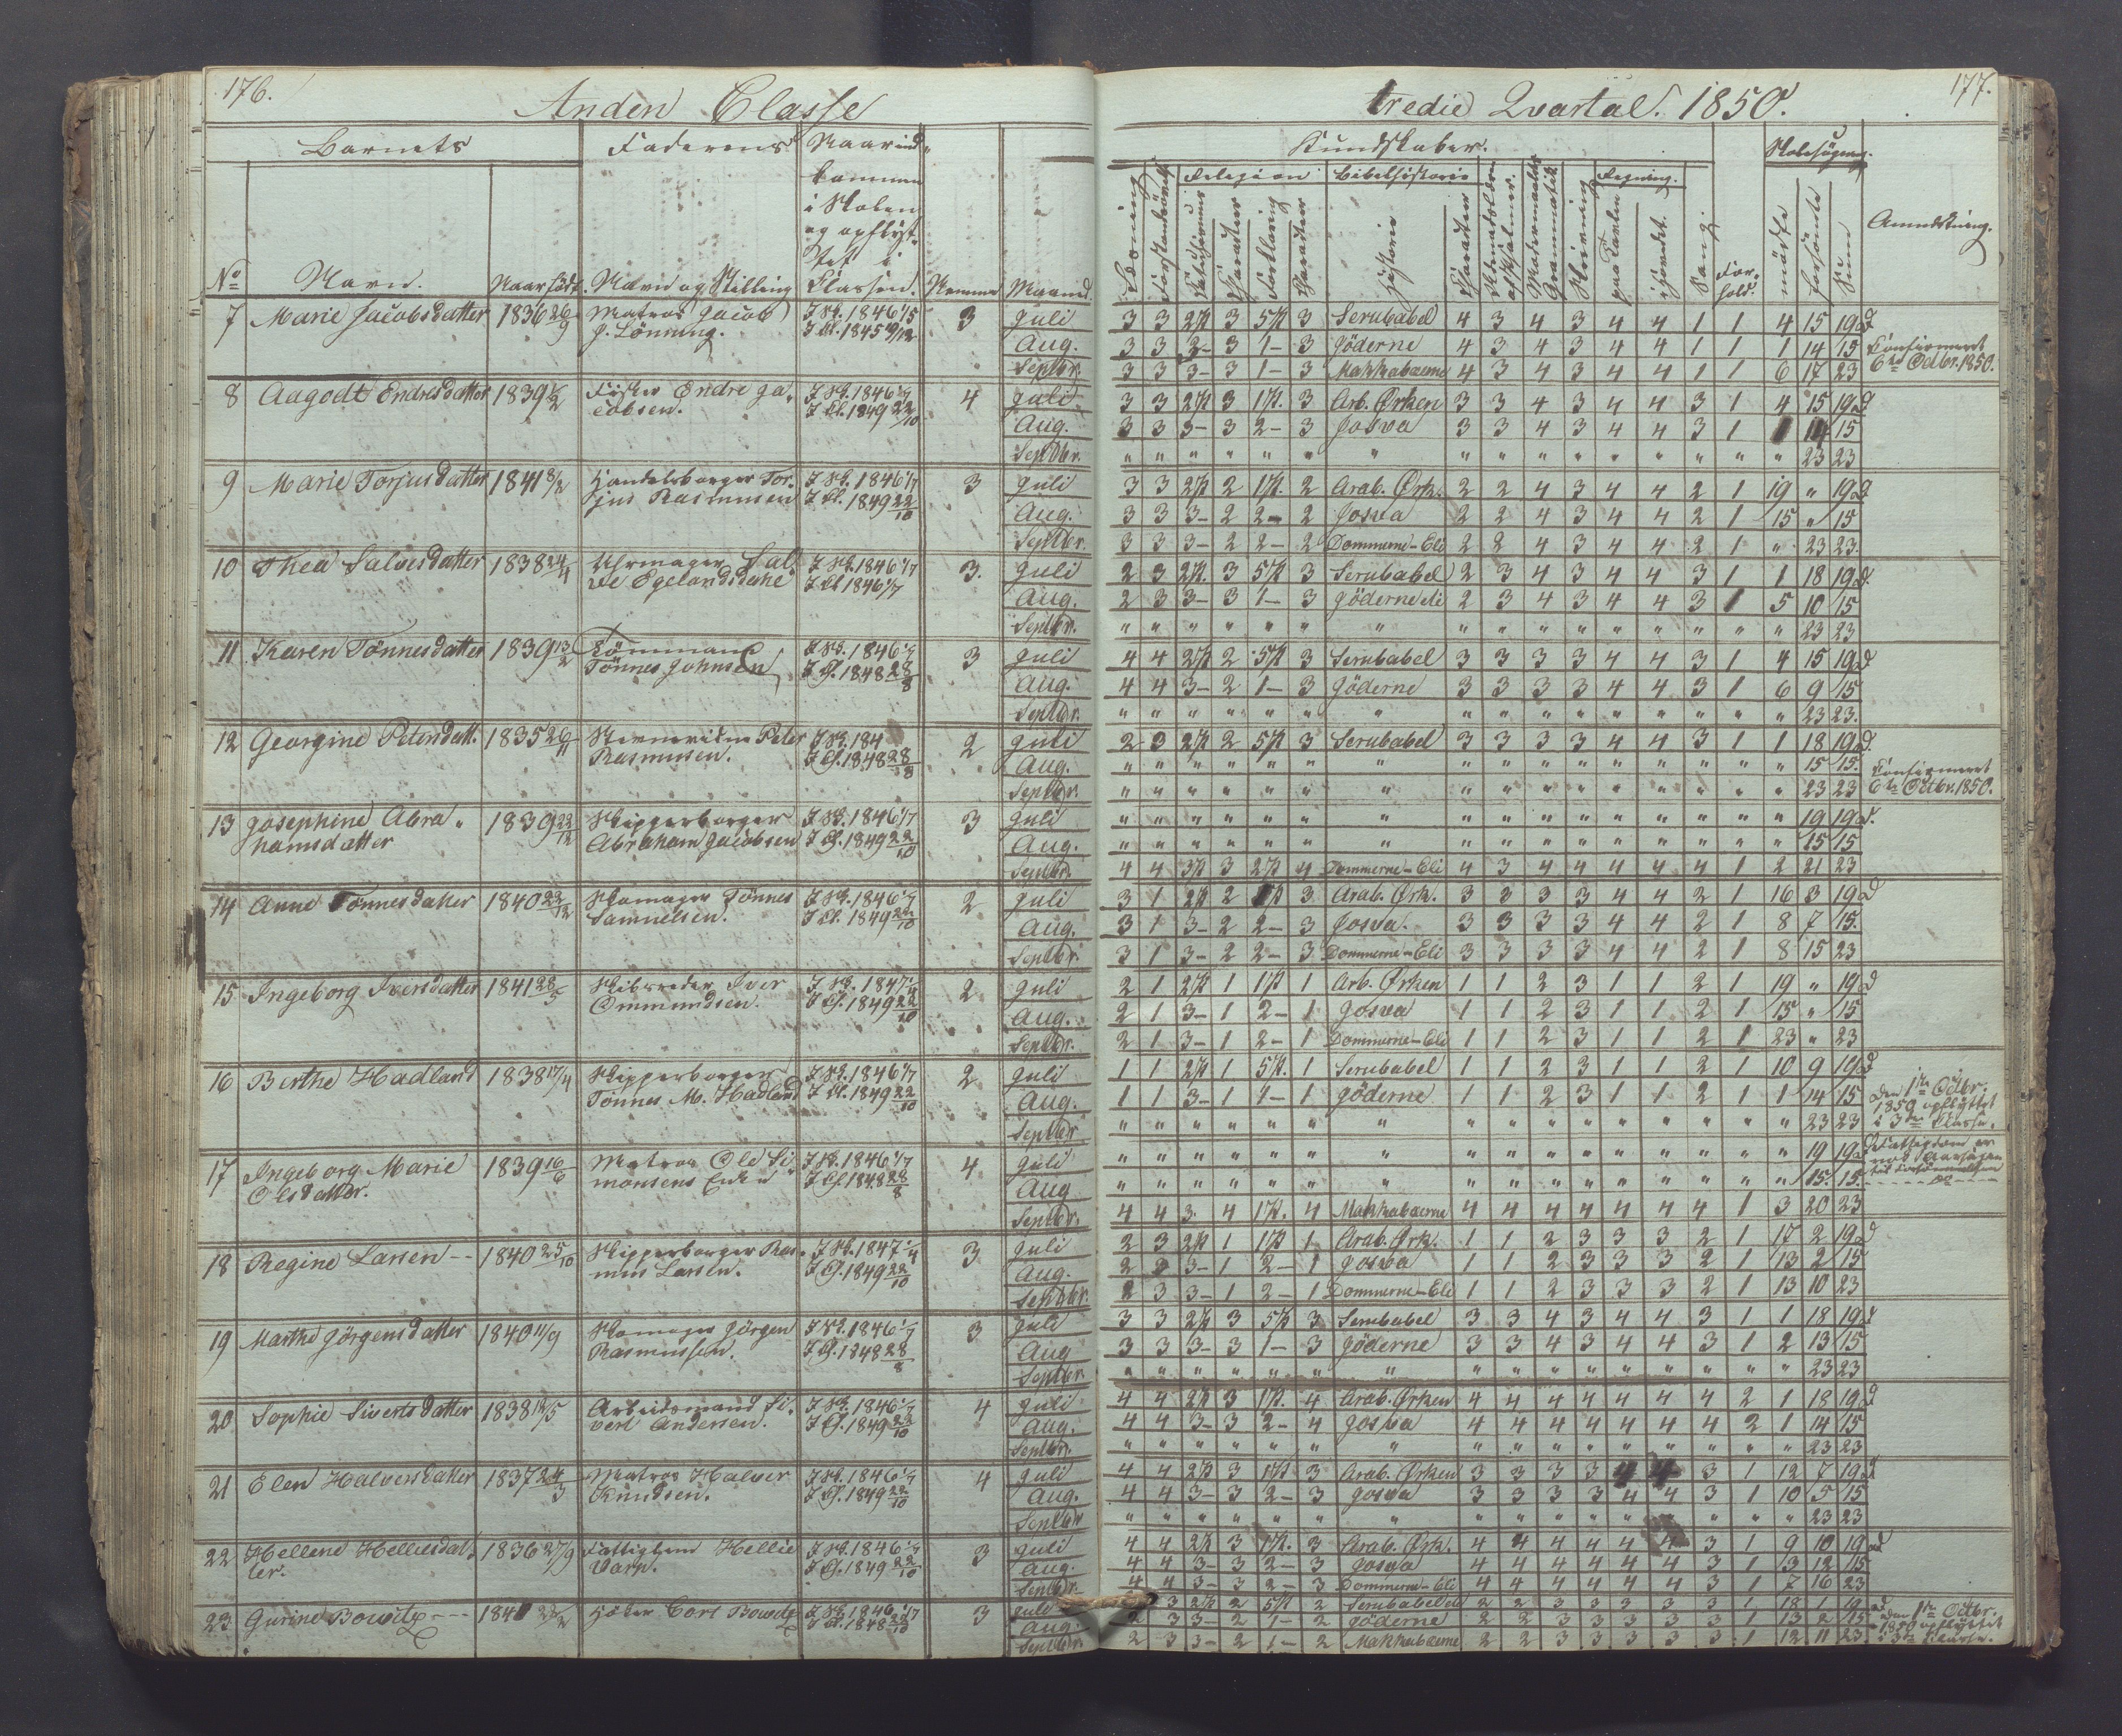 176.
Anden Classe
Barnets Faderens Naar ind-
kommen
i Skolen
og opflyt-
tet i
No Navn. Naar født. Navn og Stilling Classen. Nemme Maaned.
7 Marie Jacobsdatter 1836 26/9 Matros Jacob I Sk. 1846 1/5 3 Juli
J. Lönning. I Cl. 1845 Aug.
Septbr.
8 Aagodt Endresdatter 1839 Fisker Endre Ja- I Sk. 1846 1/7 4 Juli
cobsen. I Cl. 1849 22/10 Aug.
Septbr.
9 Marie Torjusdatter 1841 8/2 Handelsborger Tor- I Sk. 1846 1/7 3 Juli
jus Rasmussen I Cl. 1849 22/10 Aug.
Septbr.
10 Thea Salvesdatter 1838 24/4 Uhrmager Sal- I Sk. 1846 1/7 3. Juli
ve Egelandsdahl I Cl. 1846 1/7 Aug.
Septbr.
11 Karen Tönnesdatter 1839 13/2 Tömmand I Sk. 1846 1/7 3 Juli
Tönnes Johnsen I Cl. 1848 28/8 Aug.
Septbr.
12 Georgine Petersdatt. 1835 26/11 Peter I Sk. 184 2 Juli
Rasmussen. I Cl. 1848 28/8 Aug.
Septbr.
13 Josephine Abra- 1839 22/12 Skipperborger I Sk. 1846 1/7 3 Juli
hamsdatter Abraham Jacobsen I Cl. 1849 22/10 Aug.
Septbr.
14 Anne Tönnesdatter 1840 22/12 Skomager Tönnes I Sk. 1846 1/7 2 Juli
Samuelsen. I Cl. 1849 22/10 Aug.
Septbr.
15 Ingeborg Iversdatter 1841 28/5 Skibsreder Iver I Sk. 1847 1/4 2 Juli
Ommundsen. I Cl. 1849 22/10 Aug.
Septbr.
16 Birthe Hadland 1838 17/4 Skipperborger I Sk. 1846 1/7 2 Juli
Tönnes M. Hadland I Cl. 1849 22/10 Aug.
Septbr
17 Ingeborg Marie 1839 16/6 Matros Ole Si- I Sk. 1846 1/7 4 Juli
Olsdatter. monsens Enke I Cl. 1848 28/8 Aug
Septbr.
18 Regine Larsen -- 1840 25/10 Skipperborger Ras- I Sk. 1847 1/4 3 Juli
mus Larsen. I Cl. 1849 22/10 Aug.
Septbr.
19 Marthe Jörgensdatter 1840 11/9 Skomager Jörgen I Sk. 1846 1/7 3 Juli
Rasmussen. I Cl. 1848 28/8 Aug
Septbr
20 Sophie Sivertsdatter 1838 13/5 Arbeidsmand Si- I Sk. 1846 1/7 4 Juli
vert Andersen. I Cl. 1849 22/10 Aug.
Septbr.
21 Elen Halversdatter 1837 24/3 Matros Halver I Sk. 1846 1/7 4 Juli
Knudsen. I Cl. 1849 22/10 Aug.
Septbr
22 Hellene Helliesdat- 1836 27/9 Fattiglem Hellie I Sk. 1846 1/7 3 Juli
ter. Varp. I Cl. 1849 22/10 Aug.
Septbr.
23 Gurine Bowitz --- 184 Höker Carl Bowitz I Sk. 1846 1/7 3 Juli
I Cl. 1848 Aug.
Septbr
tredie Qvartal. 1850. 177.
Kundskaber. Skolesøgning.
Religion Bibelhistorie Regning.
Læsning Forstandsövelse Udenad Catechismus Charakter Forklaring Charakter Historie Charakter Skrivning paa Tavlen i Hovedet Sang For-hold. mödte forsömte Sum Anmærkning.
3 3 2 3 5 3 Serubabel 4 3 4 3 4 4 1 1 4 15 19
3 3 3- 3 1- 3 Jöderne 4 3 4 3 4 4 1 1 1 14 15 Confirmeret
3 3 3- 3 1- 3 Makkabæerne 4 3 4 3 4 4 1 1 6 17 23 6te Octbr. 1850.
3 3 2 3 1 3 Arb. Ørken 3 3 4 3 4 4 3 1 4 15 19
3 3 3- 3 2- 3 Josva 3 3 4 3 4 4 3 1 1 14 15
" " " " " " " " " " " " " " " " 23 23
3 3 2 2 1 2 Arab. Ørk. 2 2 4 3 4 4 2 1 19 " 19
3 3 3- 2 2- 2 Josva 2 2 4 3 4 4 2 1 15 " 15
3 3 3- 2 2- 2 Dommerne-Eli 2 2 4 3 4 4 2 1 " 23 23
2 3 2 3 5 3 Serubabel 2 3 4 3 4 4 3 1 1 18 19
2 3 3- 3 1- 3 Jöderne 2 3 4 3 4 4 3 1 5 10 15
" " " " " " " " " " " " " " " " 23 23
4 4 2 2 5 3 Serubabel 3 3 3 3 4 4 3 1 4 15 19
4 4 3- 2 1- 3 Jöderne 3 3 3 3 4 4 3 1 6 9 15
" " " " " " " " " " " " " " " " 23 23.
2 3 2 2 5 3 Serubabel 3 3 3 3 4 4 3 1 1 18 19
" " " " " " " " " " " " " " " " 15 15. Confirmeret
" " " " " " " " " " " " " " " " 23 23 6te Octbr. 1850.
" " " " " " " " " " " " " " " " 19 19
" " " " " " " " " " " " " " " " 15 15
4 4 3 3 2 4 Dommerne-Eli 4 3 4 4 4 4 4 1 2 21 23
3 1 2 2 1 3 Arab. Ørk. 3 3 3 3 4 4 2 1 16 3 19
3 1 3- 2 2- 3 Josva. 3 3 3 3 4 4 2 1 8 7 15.
3 1 3- 2 2- 3 Dommerne-Eli 3 3 3 3 4 4 2 1 8 15 23
2 1 2 1 1 1 Arb. Ørken 1 1 2 3 1 1 2 1 19 " 19
2 1 3- 1 2- 1 Josva 1 1 2 3 1 1 2 1 15 " 15
2 1 3- 1 2- 1 Dommerne-Eli 1 1 2 3 1 1 2 1 23 " 23
1 1 2 1 5 1 Serubabel 1 1 2 3 1 1 2 1 10 9 19
1 1 3- 1 1- 1 Jöderne 1 1 2 3 1 1 2 1 1 14 15 Den 1ste Octbr.
1850 opflyttet
" " " " " " " " " " " " " " " " 23 23 i 3die Classe.
" " " " " " " " " " " " " " " " 19 19
" " " " " " " " " " " " " " " " 15. 15.
4 4 3. 4 1 4 Makkabæerne 4 4 4 4 4 4 4 1 3 20 23
2 3 2 1 1 1 Arab. Ørk. 1 1 2 3 3 3 2 1 17 2 19
2 3 3- 1 2- 1 Josva 1 1 2 3 3 3 2 1 13 2 15
2 3 3- 1 2- 1 Dommerne-Eli 1 1 2 3 3 3 2 1 13 10 23
3 3 2 3 5 3 Serubabel 3 3 4 3 4 4 3 1 1 18 19
3 3 3- 3 1- 3 Jöderne 3 3 4 3 4 4 3 1 2 13 15
" " " " " " " " " " " " " " " " 23 23
4 4 2 3 1 4 Arab. Ørken 4 4 4 4 4 4 4 2 1 18 19
4 4 3- 3 2- 4 Josva 4 4 4 4 4 4 4 2 1 14 15
" " " " " " " " " " " " " " " " 23 23
4 4 2 3 1 3 Arab. Ørken 3 3 3 3 4 4 3 1 12 7 19
4 4 3- 3 2- 3 Josva 3 3 3 3 4 4 3 1 10 5 15
" " " " " " " " " " " " " " " " 23 23
4 4 2 3 1 3 Arab. Ørk. 4 4 4 4 4 4 3 1 9 10 19
4 4 3- 3 2- 3 Josva 4 4 4 4 4 4 3 1 3 12 15
4 4 3- 3 2- 3 Dommerne-Eli 4 4 4 4 4 4 3 1 7 16 23
3 2 2 5 2 Serubabel 2 2 3 3 3 3 3 1 18 1 19
2 3 3- 2 1- 2 Jöderne 2 2 3 3 3 3 3 1 13 2 15 den 1ste Octbr.
1850 opflyttet
2 3 3- 2 1- 2 Makkabæerne 2 2 3 3 3 3 3 1 12 11 23 i 3die Classe.